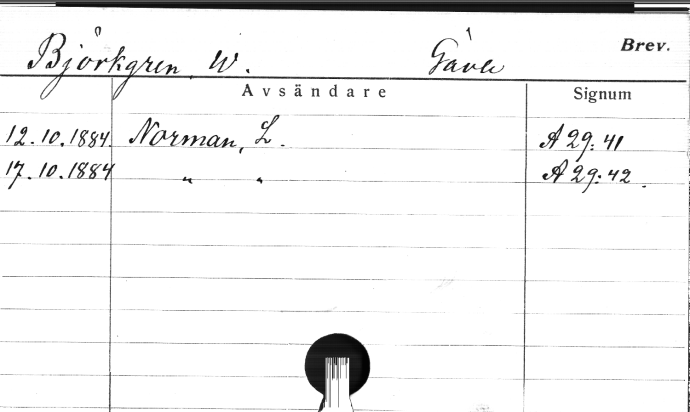 Björkgren, W. Gävle Brev.
Avsändare Signum
12.10.1884 Norman, L. A 29:41
17.10.1884 " " A 29:42.